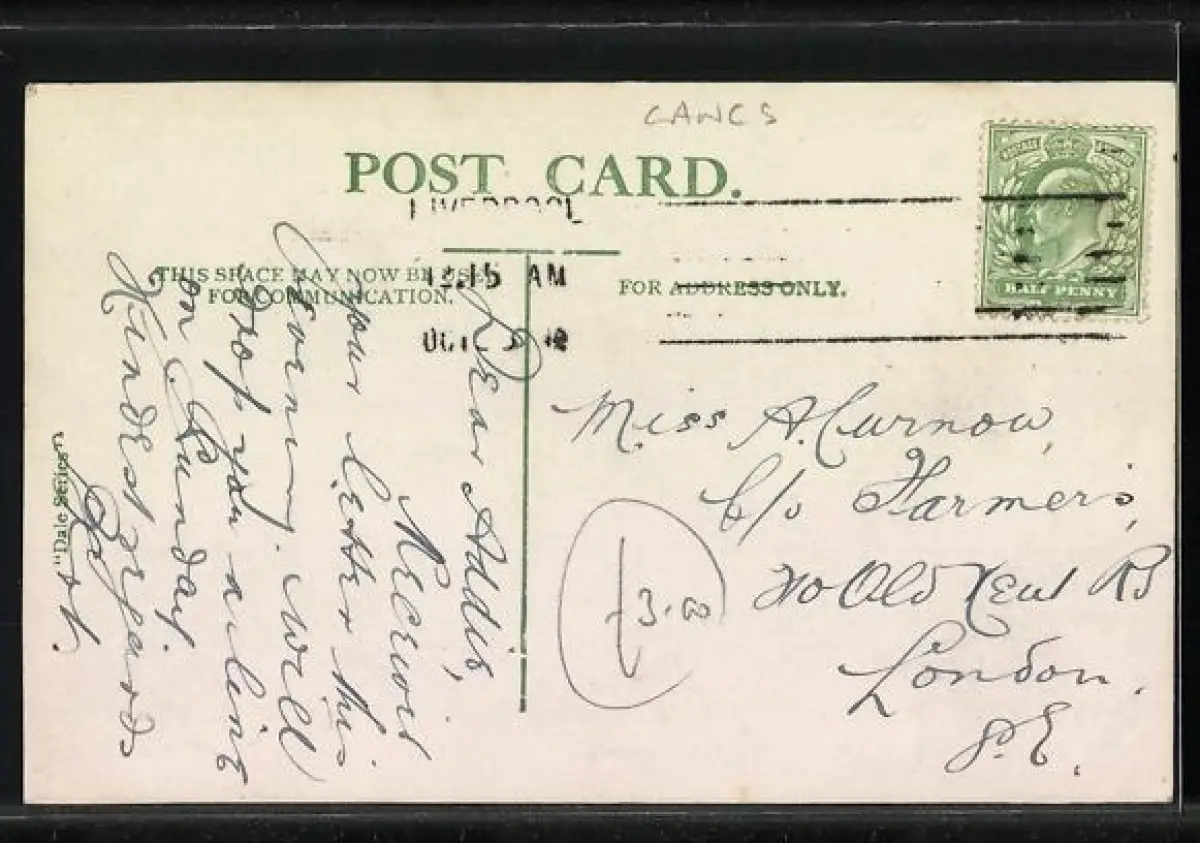 LANCS
POST CARD.
LIVERPOOL
15 AM
OCT
THIS SPACE MAY NOW BE USED
FOR COMMUNICATION.
FOR ADDRESS ONLY.
HALF PENNY
Dear Addie,
Received
your letter this
Evening. Will
drop you a line
on Sunday.
Kindest regards
"Dale Series"
Miss A. Curnow,
c/o Farmers,
Old Kent Rd
London.
S.E.
£3.00